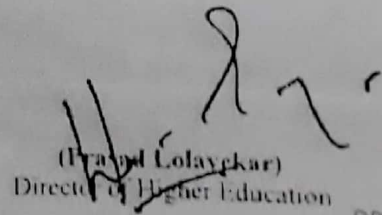 (Prasad Lolayekar)
Director of Higher Education